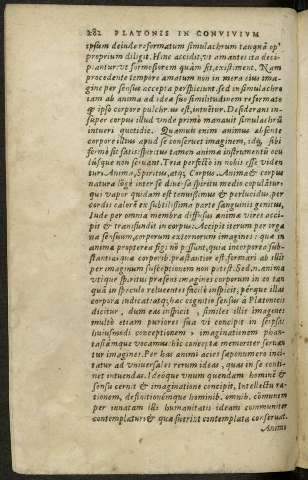 282 PLATONIS IN CONVIVIVM
ipsum deinde reformatum simulachrum tanquã op⁹
proprium diligit. Hinc accidit, vt amantes ita deci-
piantur, vt formosiorem quàm sit, existiment. Nam
procedente tempore amatum non in mera eius ima-
gine per sensus accepta perspiciunt, sed in simulachro
tam ab anima ad ideæ suæ similitudinem reformato
quod ipso corpore pulchrius est, intuentur. Desiderant in-
super corpus illud vnde primò manauit simulachrũ
intueri quotidie. Quamuis enim animus absente
corpore illius apud se conseruet imaginem, idq́; sibi
fermè sit satis: spiritus tamen animæ instrumentũ ocu
lúsque non seruant. Tria perfectò in nobis esse viden
tur: Anima, Spiritus, atq́; Corpus. Anima & corpus
natura lõgè inter se diuersa spiritu medio copulãtur
qui vapor quidam est tenuissimus & perlucidus, per
cordis calorẽ ex subtilissima parte sanguinis genitus,
Inde per omnia membra diffusus animæ vires acci-
pit & transfundit in corpus. Accipit iterum per orga
na sensuum, corporum externorum imagines: quæ in
anima propterea figi nõ possunt, quia incorporea sub-
stantia: quæ corporib. præstantior est formari ab illis
per imaginum susceptionem non potest. Sed anima
vtique spiritui præsens imagines corporum in eo tan
quã in speculo relucentes facilè inspicit, pérque illas
corpora iudicat: atq́; hæc cognitio sensus à Platonicis
dicitur, dum eas inspicit, similes illis imagines
multo etiam puriores sua vi concipit in seipsa:
huiusmodi conceptionem, imaginationem phan-
tasiámque vocamus: hic concepta memoriter seruan
tur imagines. Per has animi acies sæpenumero inci-
tatur ad vniuersales rerum ideas, quas in se conti-
net intuendas. Ideóque vnum quendam hominẽ &
sensu cernit & imaginatione concipit, Intellectu ra-
tionem, definitionémque hominib. omnib. cõmunem
per innatam illi humanitatis ideam communiter
contemplatur: & quæ fuerint contemplata cõseruat.
Animo